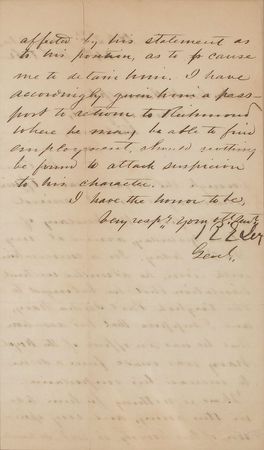 affected by his statement as
to his position, as to cause
me to detain him. I have
accordingly given him a pass-
port to return to Richmond
where he may be able to find
employment, should nothing
be found to attach suspicion
to his character.
I have the honor to be,
Very respy your obt Svt
R E Lee
Genl.